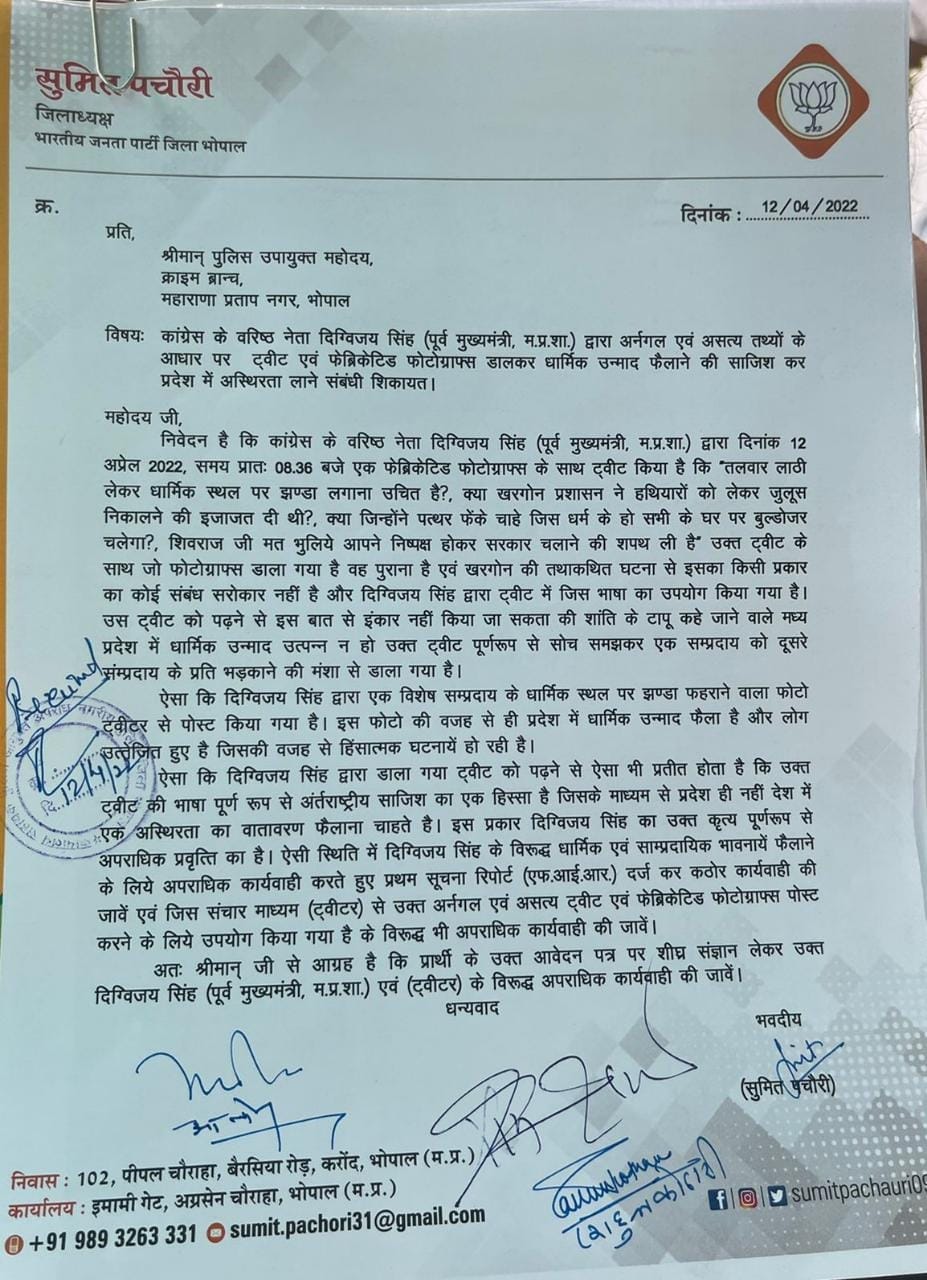 सुमित पचौरी
जिलाध्यक्ष
भारतीय जनता पार्टी जिला भोपाल
क्र.
दिनांक : 12/04/2022
प्रति,
श्रीमान् पुलिस उपायुक्त महोदय,
क्राइम ब्रान्च,
महाराणा प्रताप नगर, भोपाल
विषयः कांग्रेस के वरिष्ठ नेता दिग्विजय सिंह (पूर्व मुख्यमंत्री, म.प्र.शा.) द्वारा अर्नगल एवं असत्य तथ्यों के
आधार पर ट्वीट एवं फेब्रिकेटिड फोटोग्राफ्स डालकर धार्मिक उन्माद फैलाने की साजिश कर
प्रदेश में अस्थिरता लाने संबंधी शिकायत।
महोदय जी,
निवेदन है कि कांग्रेस के वरिष्ठ नेता दिग्विजय सिंह (पूर्व मुख्यमंत्री, म.प्र.शा.) द्वारा दिनांक 12
अप्रेल 2022, समय प्रातः 08.36 बजे एक फेब्रिकेटिड फोटोग्राफ्स के साथ ट्वीट किया है कि "तलवार लाठी
लेकर धार्मिक स्थल पर झण्डा लगाना उचित है?, क्या खरगोन प्रशासन ने हथियारों को लेकर जुलूस
निकालने की इजाजत दी थी?, क्या जिन्होंने पत्थर फेंके चाहे जिस धर्म के हो सभी के घर पर बुल्डोजर
चलेगा?, शिवराज जी मत भुलिये आपने निष्पक्ष होकर सरकार चलाने की शपथ ली है" उक्त ट्वीट के
साथ जो फोटोग्राफ्स डाला गया है वह पुराना है एवं खरगोन की तथाकथित घटना से इसका किसी प्रकार
का कोई संबंध सरोकार नहीं है और दिग्विजय सिंह द्वारा ट्वीट में जिस भाषा का उपयोग किया गया है।
उस ट्वीट को पढ़ने से इस बात से इंकार नहीं किया जा सकता की शांति के टापू कहे जाने वाले मध्य
प्रदेश में धार्मिक उन्माद उत्पन्न न हो उक्त ट्वीट पूर्णरूप से सोच समझकर एक सम्प्रदाय को दूसरे
संम्प्रदाय के प्रति भड़काने की मंशा से डाला गया है।
ऐसा कि दिग्विजय सिंह द्वारा एक विशेष सम्प्रदाय के धार्मिक स्थल पर झण्डा फहराने वाला फोटो
ट्वीटर से पोस्ट किया गया है। इस फोटो की वजह से ही प्रदेश में धार्मिक उन्माद फैला है और लोग
उत्तेजित हुए है जिसकी वजह से हिंसात्मक घटनायें हो रही है।
ऐसा कि दिग्विजय सिंह द्वारा डाला गया ट्वीट को पढ़ने से ऐसा भी प्रतीत होता है कि उक्त
ट्वीट की भाषा पूर्ण रूप से अंर्तराष्ट्रीय साजिश का एक हिस्सा है जिसके माध्यम से प्रदेश ही नहीं देश में
एक अस्थिरता का वातावरण फैलाना चाहते है। इस प्रकार दिग्विजय सिंह का उक्त कृत्य पूर्णरूप से
अपराधिक प्रवृत्ति का है। ऐसी स्थिति में दिग्विजय सिंह के विरूद्ध धार्मिक एवं साम्प्रदायिक भावनायें फैलाने
के लिये अपराधिक कार्यवाही करते हुए प्रथम सूचना रिपोर्ट (एफ.आई.आर.) दर्ज कर कठोर कार्यवाही की
जावें एवं जिस संचार माध्यम (ट्वीटर) से उक्त अर्नगल एवं असत्य ट्वीट एवं फेब्रिकेटिड फोटोग्राफ्स पोस्ट
करने के लिये उपयोग किया गया है के विरूद्ध भी अपराधिक कार्यवाही की जावें।
अतः श्रीमान् जी से आग्रह है कि प्रार्थी के उक्त आवेदन पत्र पर शीघ्र संज्ञान लेकर उक्त
दिग्विजय सिंह (पूर्व मुख्यमंत्री, म.प्र.शा.) एवं (ट्वीटर) के विरूद्ध अपराधिक कार्यवाही की जावें।
धन्यवाद
भवदीय
(सुमित पचौरी)
Received
12/4/22
निवास : 102, पीपल चौराहा, बैरसिया रोड़, करोंद, भोपाल (म.प्र.)
कार्यालय : इमामी गेट, अग्रसेन चौराहा, भोपाल (म.प्र.)
+91 989 3263 331 sumit.pachori31@gmail.com
sumitpachauri09